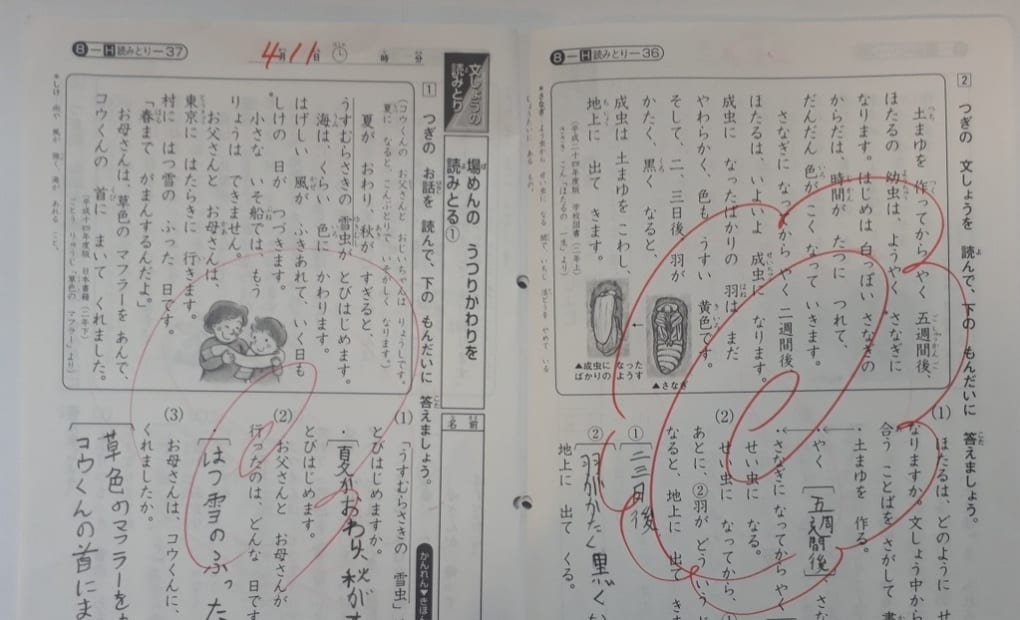 8－H 読みとり－36
2 つぎの 文しょうを 読んで、下の もんだいに 答えましょう。
土まゆを 作ってから やく 五週間後、
ほたるの 幼虫は、ようやく さなぎに
なります。はじめは 白っぽい さなぎの
からだは、時間が たつに つれて、
だんだん 色が こくなって いきます。
さなぎに なってから やく 二週間後、
ほたるは、いよいよ 成虫に なります。
成虫に なったばかりの 羽は まだ
やわらかく、色も うすい 黄色です。
そして、二、三日後、羽が
かたく、黒く なると、
成虫は 土まゆを こわし、
地上に 出て きます。
▲さなぎ
▲成虫に なった
ばかりの ようす
(1) ほたるは、どのように せ
なりますか。文しょう中から
合う ことばを さがして 書
・土まゆを 作る。
・やく 〔五週間後〕 さな
・さなぎに なってから やく
せい虫に なる。
(2) せい虫に なってから、①
あとに、②羽が どういう
なると、地上に 出て き
① 二三日後
② 羽がかたく黒く
地上に 出て くる。
8－H 読みとり－37
4月11日 時 分
文しょうの
読みとり
場めんの うつりかわりを
読みとる①
名前
かんれん▼きほ
1 つぎの お話を 読んで、下の もんだいに 答えましょう。
コウくんの お父さんと おじいちゃんは りょうしです。
夏に なると、こんぶとりで いそがしく なります。
夏が おわり、秋が すぎると、
うすむらさきの 雪虫が とびはじめます。
海は、くらい 色に かわります。
はげしい 風が ふきあれて、いく日も
しけの 日が つづきます。
小さな いそ船では、もう
りょうは できません。
お父さんと お母さんは、
東京に はたらきに 行きます。
村に はつ雪の ふった 日です。
「春まで がまんするんだよ。」
お母さんは、草色の マフラーを あんで、
コウくんの 首に まいて くれました。
(1) 「うすむらさきの 雪虫」
とびはじめますか。
・夏がおわり、秋がす
とびはじめます。
(2) お父さんと お母さんが
行ったのは、どんな 日です
・はつ雪のふった
(3) お母さんは、コウくんに、
くれましたか。
草色のマフラーを
コウくんの首にま